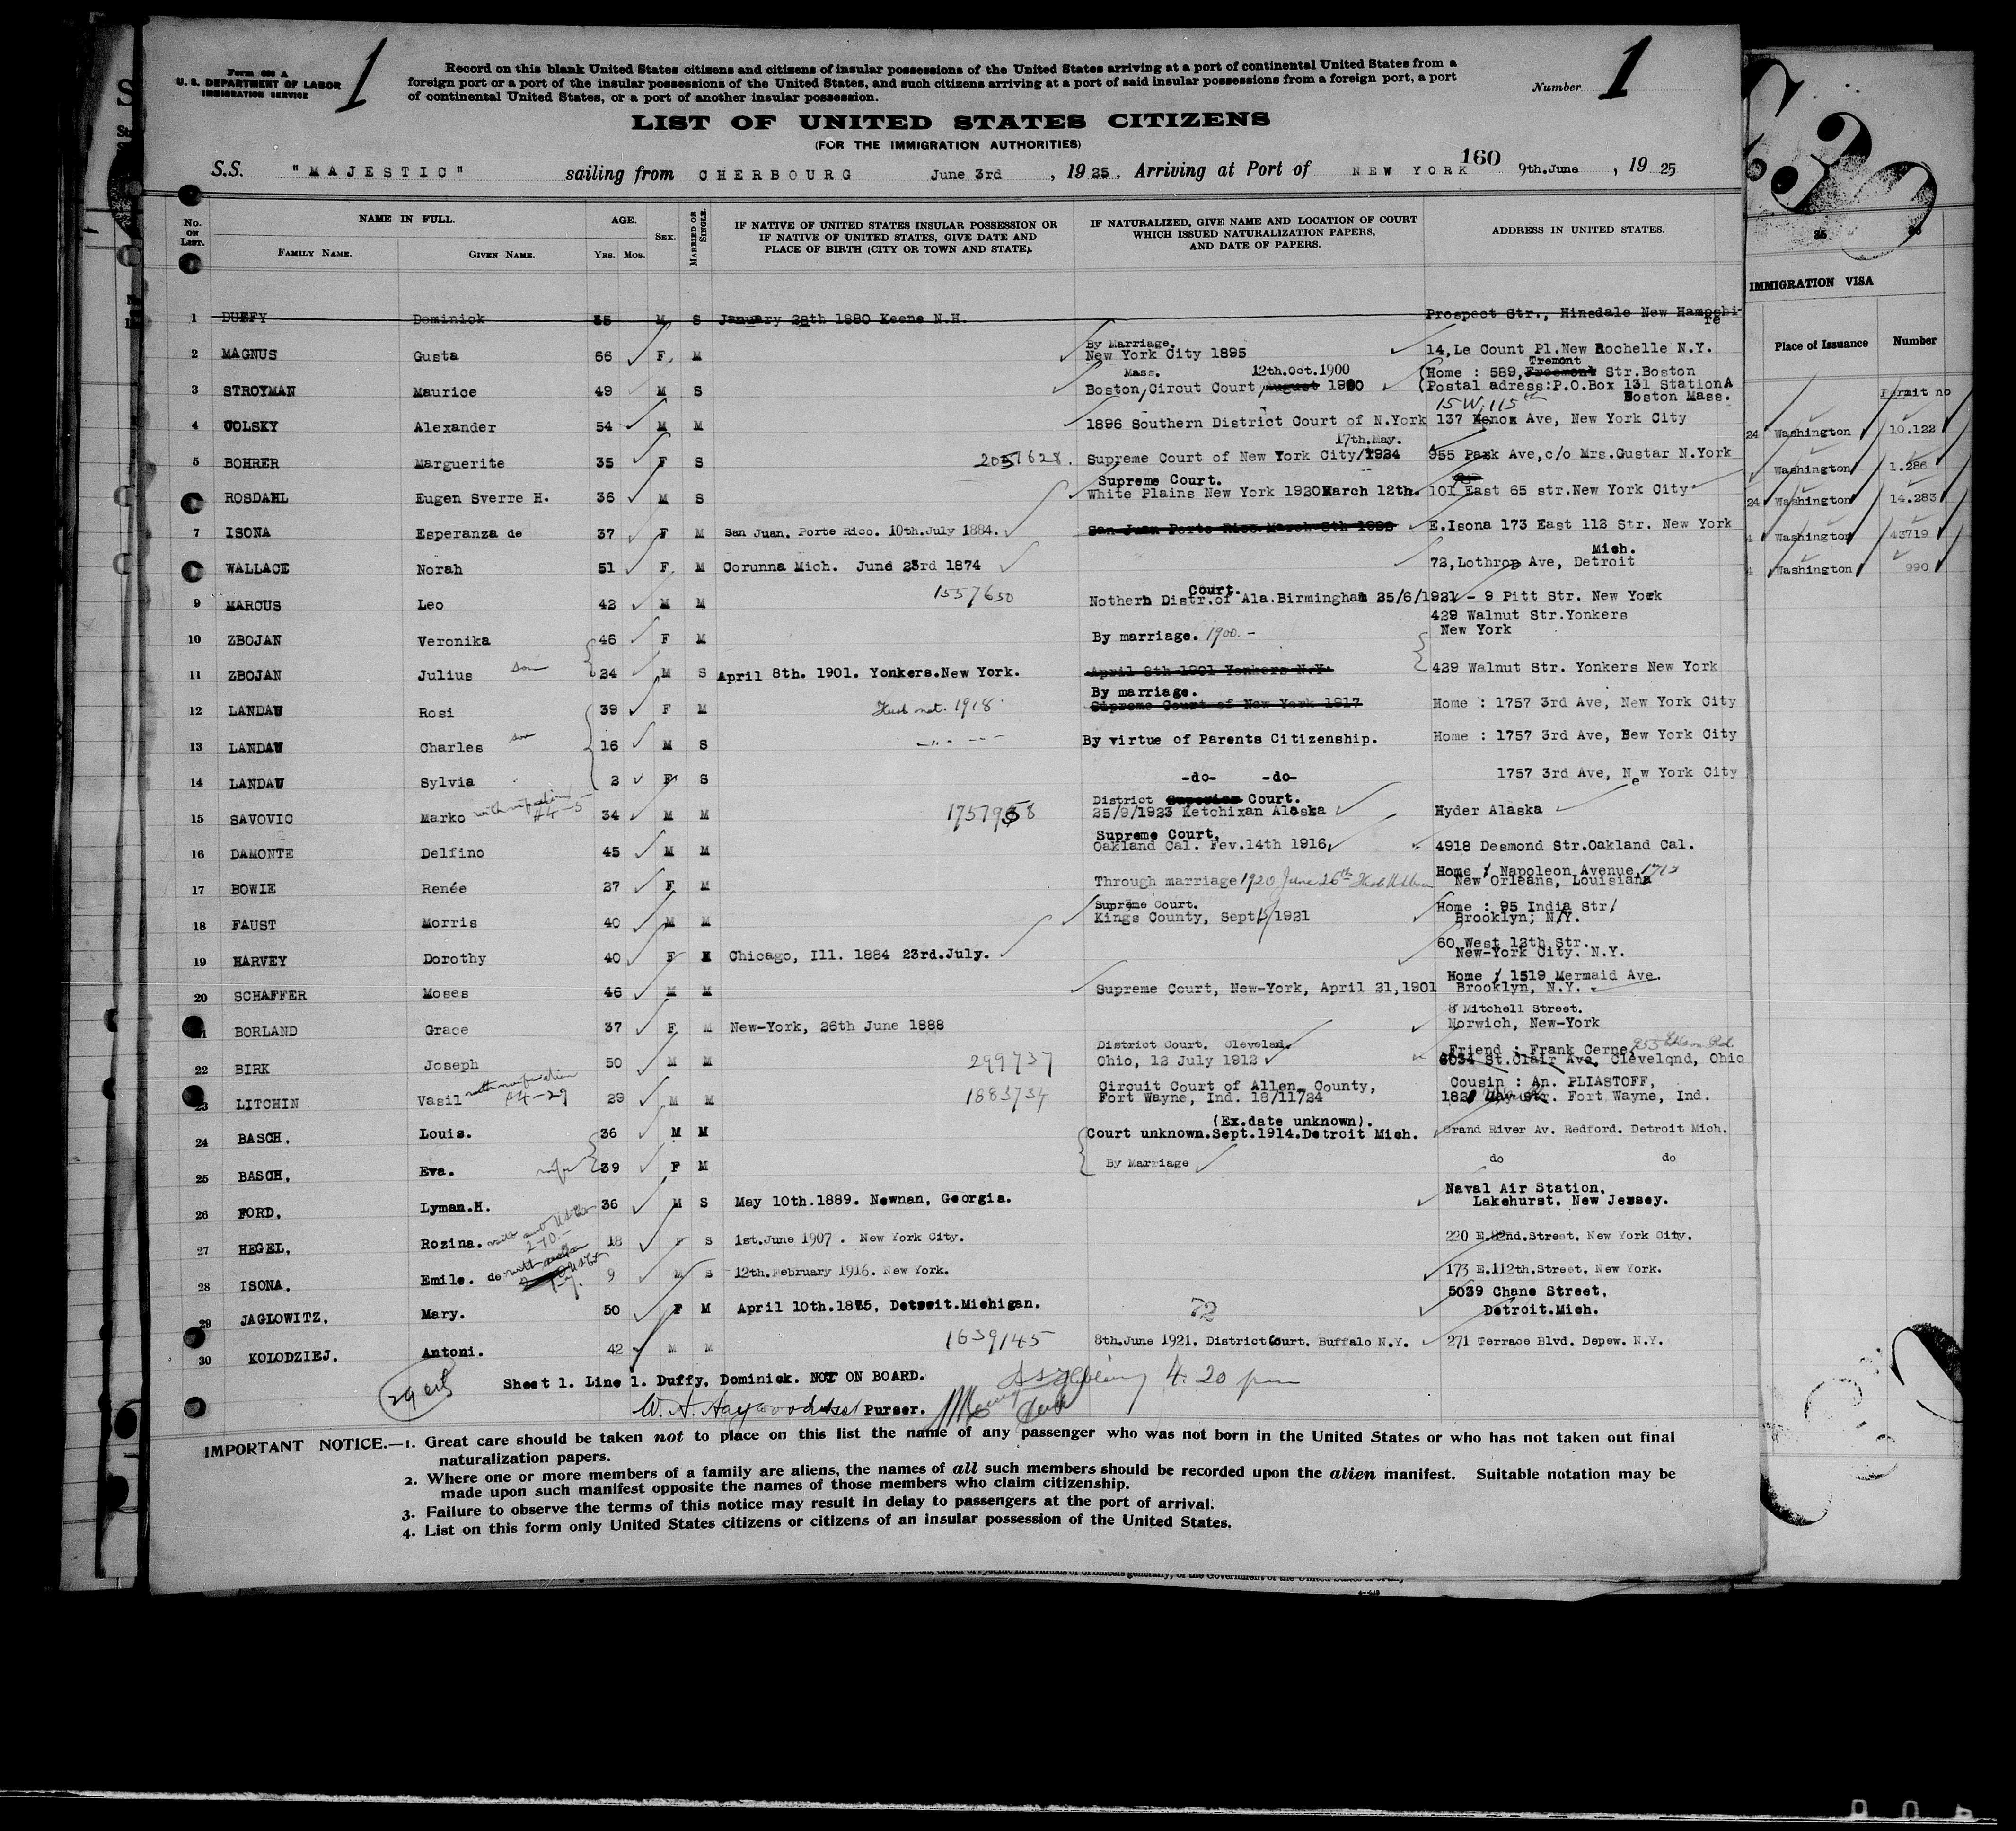 Form 630 A
U. S. DEPARTMENT OF LABOR
IMMIGRATION SERVICE
1
Record on this blank United States citizens and citizens of insular possessions of the United States arriving at a port of continental United States from a
foreign port or a port of the insular possessions of the United States, and such citizens arriving at a port of said insular possessions from a foreign port, a port
of continental United States, or a port of another insular possession.
Number 1
LIST OF UNITED STATES CITIZENS
(FOR THE IMMIGRATION AUTHORITIES)
S.S. "MAJESTIC" sailing from CHERBOURG June 3rd , 1925. Arriving at Port of NEW YORK 160 9th.June , 1925
No. ON LIST. NAME IN FULL. FAMILY NAME. GIVEN NAME. AGE. YRS. MOS. SEX. MARRIED OR SINGLE. IF NATIVE OF UNITED STATES INSULAR POSSESSION OR IF NATIVE OF UNITED STATES, GIVE DATE AND PLACE OF BIRTH (CITY OR TOWN AND STATE). IF NATURALIZED, GIVE NAME AND LOCATION OF COURT WHICH ISSUED NATURALIZATION PAPERS, AND DATE OF PAPERS. ADDRESS IN UNITED STATES.
1 DUFFY Dominick 35 M S January 28th 1880 Keene N.H. Prospect Str., Hinsdale New Hampshi-re
2 MAGNUS Gusta 66 F. M By Marriage. New York City 1895 14, Le Count Pl.New Rochelle N.Y.
3 STROYMAN Maurice 49 M S Mass. 12th.Oct.1900 Boston, Circut Court, August 1900 (Home : 589, Freemont Tremont Str.Boston
(Postal adress:P.O.Box 131 Station A Boston Mass.
15 W. 115th
4 UOLSKY Alexander 54 M M 1896 Southern District Court of N.York 137 Lenox Ave, New York City
5 BOHRER Marguerite 35 F S 2051628. Supreme Court of New York City/1924 17th.May. 955 Park Ave,c/o Mrs.Gustar N.York
ROSDAHL Eugen Sverre H. 36 M S Supreme Court. White Plains New York 1920 March 12th. 101 East 65 str.New York City
7 ISONA Esperanza de 37 F M San Juan. Porto Rico. 10th.July 1884. E.Isona 173 East 112 Str. New York
WALLACE Norah 51 F M Corunna Mich. June 23rd 1874 72, Lothrop Ave, Detroit Mich.
9 MARCUS Leo 42 M M 1557650 Nothern Distr.of Court. Ala.Birmingham 25/6/1921 - 9 Pitt Str. New York
10 ZBOJAN Veronika 46 F M By marriage. 1900.- 429 Walnut Str.Yonkers New York
11 ZBOJAN Julius son 24 M S April 8th. 1901. Yonkers.New York. April 8th 1901 Yonkers N.Y. 429 Walnut Str. Yonkers New York
12 LANDAU Rosi 39 F M Husb nat. 1918. By marriage. Supreme Court of New York 1917 Home : 1757 3rd Ave, New York City
13 LANDAU Charles son 16 M S By virtue of Parents Citizenship. Home : 1757 3rd Ave, New York City
14 LANDAU Sylvia 2 F S -do- -do- 1757 3rd Ave, New York City
15 SAVOVIC Marko 34 M M 1757958 District Superior Court. 25/9/1923 Ketchikan Alaska Hyder Alaska
16 DAMONTE Delfino 45 M M Supreme Court, Oakland Cal. Fev.14th 1916 4918 Desmond Str.Oakland Cal.
17 BOWIE Renée 27 F M Through marriage 1920 June 26th Home / Napoleon Avenue 1713 New Orleans, Louisiana
18 FAUST Morris 40 M M Supreme Court. Kings County, Sept. 1921 Home : 95 India Str/ Brooklyn, N.Y.
19 HARVEY Dorothy 40 F M Chicago, Ill. 1884 23rd.July. 60 West 12th Str. New-York City. N.Y.
20 SCHAFFER Moses 46 M M Supreme Court, New-York, April 21,1901 Home / 1519 Mermaid Ave. Brooklyn, N.Y.
BORLAND Grace 37 F M New-York, 26th June 1888 8 Mitchell Street. Norwich, New-York
22 BIRK Joseph 50 M M 299737 District Court. Cleveland. Ohio, 12 July 1912 Friend : Frank Cerne, 6034 St.Clair Ave, Clevelqnd, Ohio
23 LITCHIN Vasil 29 M M 1883734 Circuit Court of Allen County, Fort Wayne, Ind. 18/11724 Cousin : An. PLIASTOFF, Fort Wayne, Ind.
24 BASCH. Louis. 36 M M (Ex.date unknown). Court unknown.Sept.1914.Detroit Mich. Grand River Av. Redford. Detroit Mich.
25 BASCH. Eva. wife 39 F M By Marriage do do
26 FORD. Lyman.H. 36 M S May 10th.1889. Newnan, Georgia. Naval Air Station, Lakehurst. New Jersey.
27 HEGEL. Rozina. 18 F S 1st.June 1907. New York City. 220 E.82nd.Street. New York City.
28 ISONA. Emile. de 9 M S 12th.February 1916. New York. 173 E.112th.Street. New York.
29 JAGLOWITZ. Mary. 50 F M April 10th.1875, Detroit.Michigan. 72 5039 Chane Street, Detroit.Mich.
30 KOLODZIEJ. Antoni. 42 M M 1639145 8th.June 1921. District Court. Buffalo N.Y. 271 Terrace Blvd. Depew. N.Y.
Sheet 1. Line 1. Duffy, Dominick. NOT ON BOARD. 4.20 pm
Purser.
IMPORTANT NOTICE.—1. Great care should be taken not to place on this list the name of any passenger who was not born in the United States or who has not taken out final
naturalization papers.
2. Where one or more members of a family are aliens, the names of all such members should be recorded upon the alien manifest. Suitable notation may be
made upon such manifest opposite the names of those members who claim citizenship.
3. Failure to observe the terms of this notice may result in delay to passengers at the port of arrival.
4. List on this form only United States citizens or citizens of an insular possession of the United States.
35
IMMIGRATION VISA
Place of Issuance Number
Permit no
24 Washington 10.122
Washington 1.286
24 Washington 14.283
Washington 43719
Washington 990